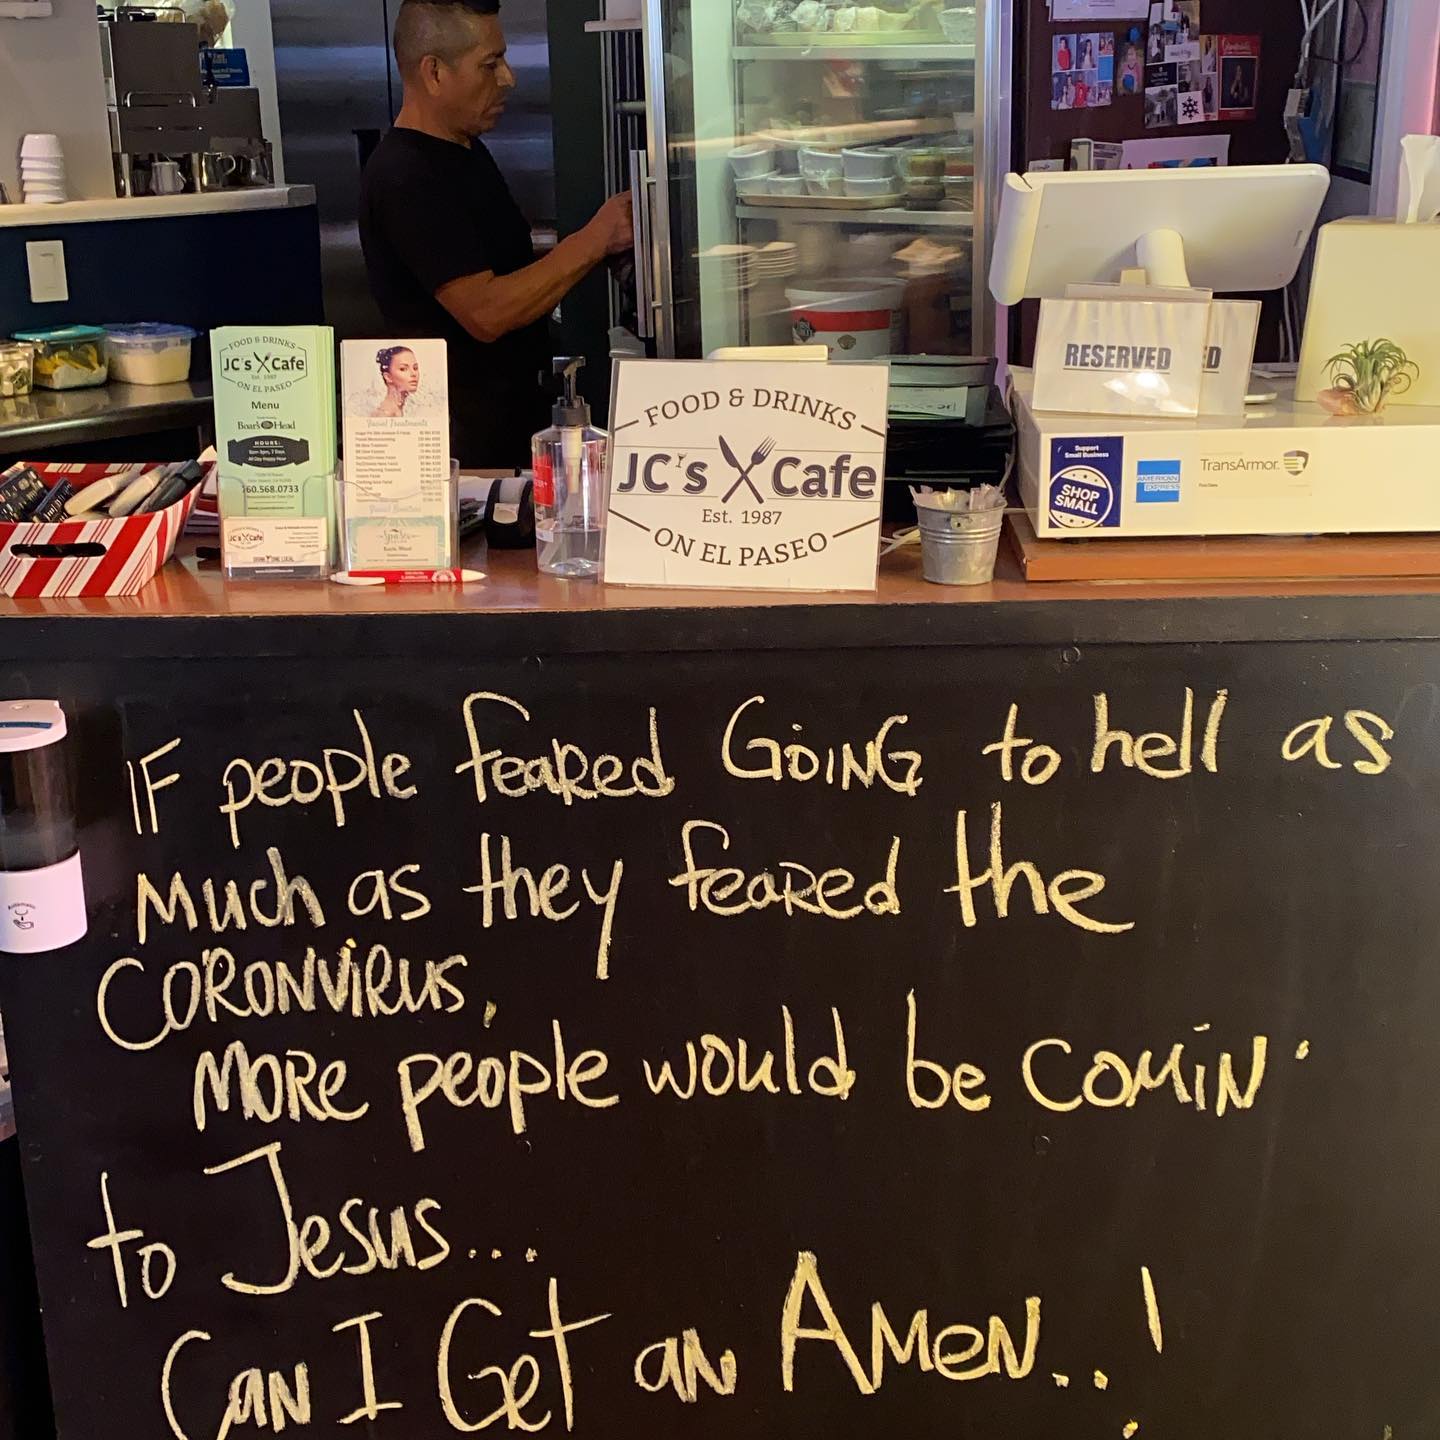 FOOD & DRINKS
JC's Cafe
Est. 1987
ON EL PASEO
Menu
Boar's Head
HOURS:
8am-3pm, 7 Days
All Day Happy Hour
760.568.0733
JC's Cafe
Facial Treatments
FOOD & DRINKS
JC's Cafe
Est. 1987
ON EL PASEO
RESERVED
ED
Support
Small Business
SHOP
SMALL
AMERICAN
EXPRESS
TransArmor
IF people feared GOiNG to hell as
Much as they feared the
CORONViRus,
MORe people would be COMiN'
to Jesus...
Can I Get an AMeN..!